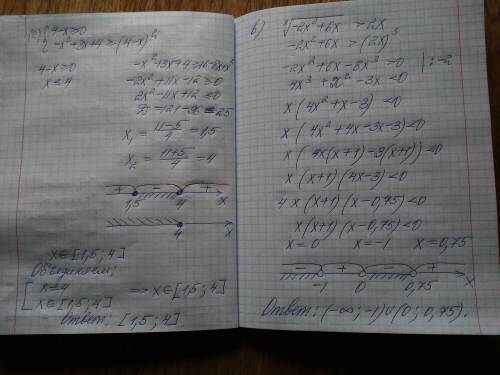 { 4-x≥0
-x²+3x+4≥(4-x)²
4-x≥0
x≤4
-2x²+11x-12≥0
2x²-11x+12≤0
x₁ = (11-5)/4 = 1,5
x₂ = (11+5)/4 = 4
+ - +
1,5 4 x
4 x
x∈[1,5; 4]
Объединяем:
[ x=4
x∈[1,5; 4] ⟹ x∈[1,5; 4]
Ответ: [1,5; 4].
в) ³√-2x²+6x > 2x
-2x²+6x > (2x)³
-2x²+6x-8x³>0 | :-2
4x³+x²-3x<0
x(4x²+x-3)<0
x(4x²+4x-3x-3)<0
x(4x(x+1)-3(x+1))<0
x(x+1)(4x-3)<0
4x(x+1)(x-0,75)<0
x(x+1)(x-0,75)<0
x=0 x=-1 x=0,75
- + - +
-1 0 0,75 x
Ответ: (-∞; -1)∪(0; 0,75).